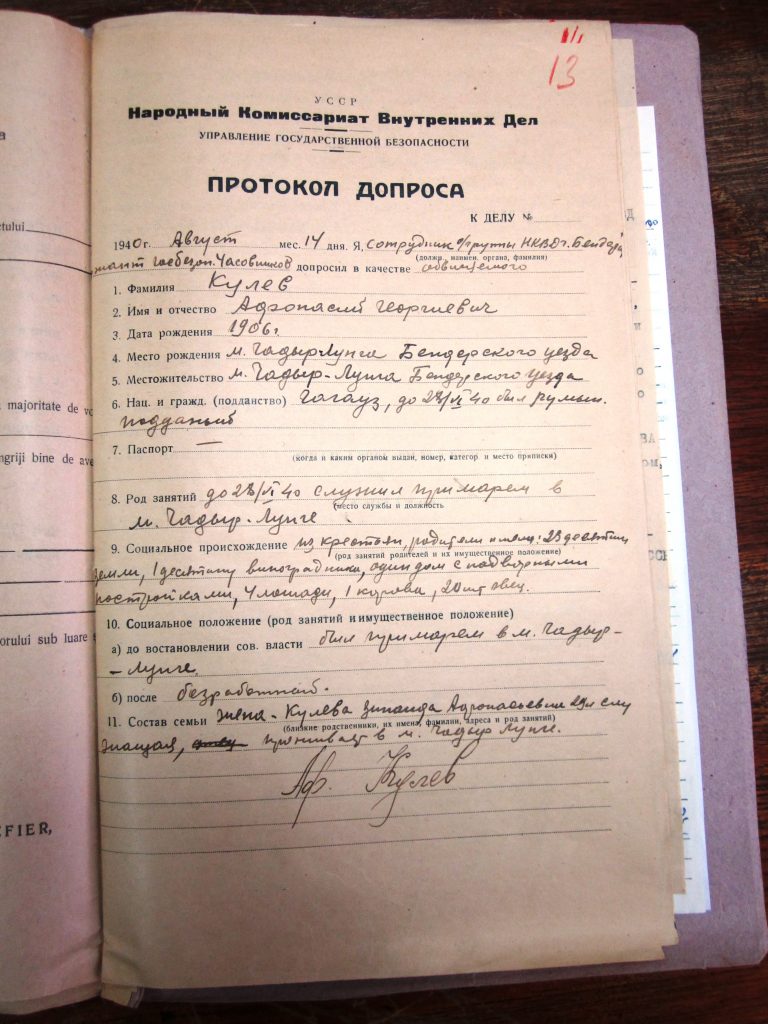 13
УССР
Народный Комиссариат Внутренних Дел
УПРАВЛЕНИЕ ГОСУДАРСТВЕННОЙ БЕЗОПАСНОСТИ
ПРОТОКОЛ ДОПРОСА
К ДЕЛУ №
1940 г. Август мес. 14 дня. Я, сотрудник о/группы НКВД г. Бендеры
(должн., наимен. органа, фамилия)
госбезоп. Часовников допросил в качестве обвиняемого
1. Фамилия Кулев
2. Имя и отчество Афонасий Георгиевич
3. Дата рождения 1906 г.
4. Место рождения м. Чадыр-Лунга Бендерского уезда
5. Местожительство м. Чадыр-Лунга Бендерского уезда
6. Нац. и гражд. (подданство) гагауз, до 28/VI 40 был румын.
подданый
7. Паспорт —
(когда и каким органом выдан, номер, категор. и место приписки)
8. Род занятий до 28/VI 40 служил примарем в
(место службы и должность
м. Чадыр-Лунге
9. Социальное происхождение из крестьян, родители имели: 23 десятин
(род занятий родителей и их имущественное положение)
земли, 1 десятину виноградника, один дом с подворными
постройками, 4 лошади, 1 корова, 20 шт овец.
10. Социальное положение (род занятий и имущественное положение)
а) до востановлении сов. власти был примарем в м. Чадыр-
-Лунге.
б) после безработный.
11. Состав семьи жена - Кулева Зинаида Афонасьевна
(близкие родственники, их имена, фамилии, адреса и род занятий)
проживает в м. Чадыр Лунге.
Аф. Кулев
ctului
majoritate de
ngriji bine de
orului sub luare
EFIER,